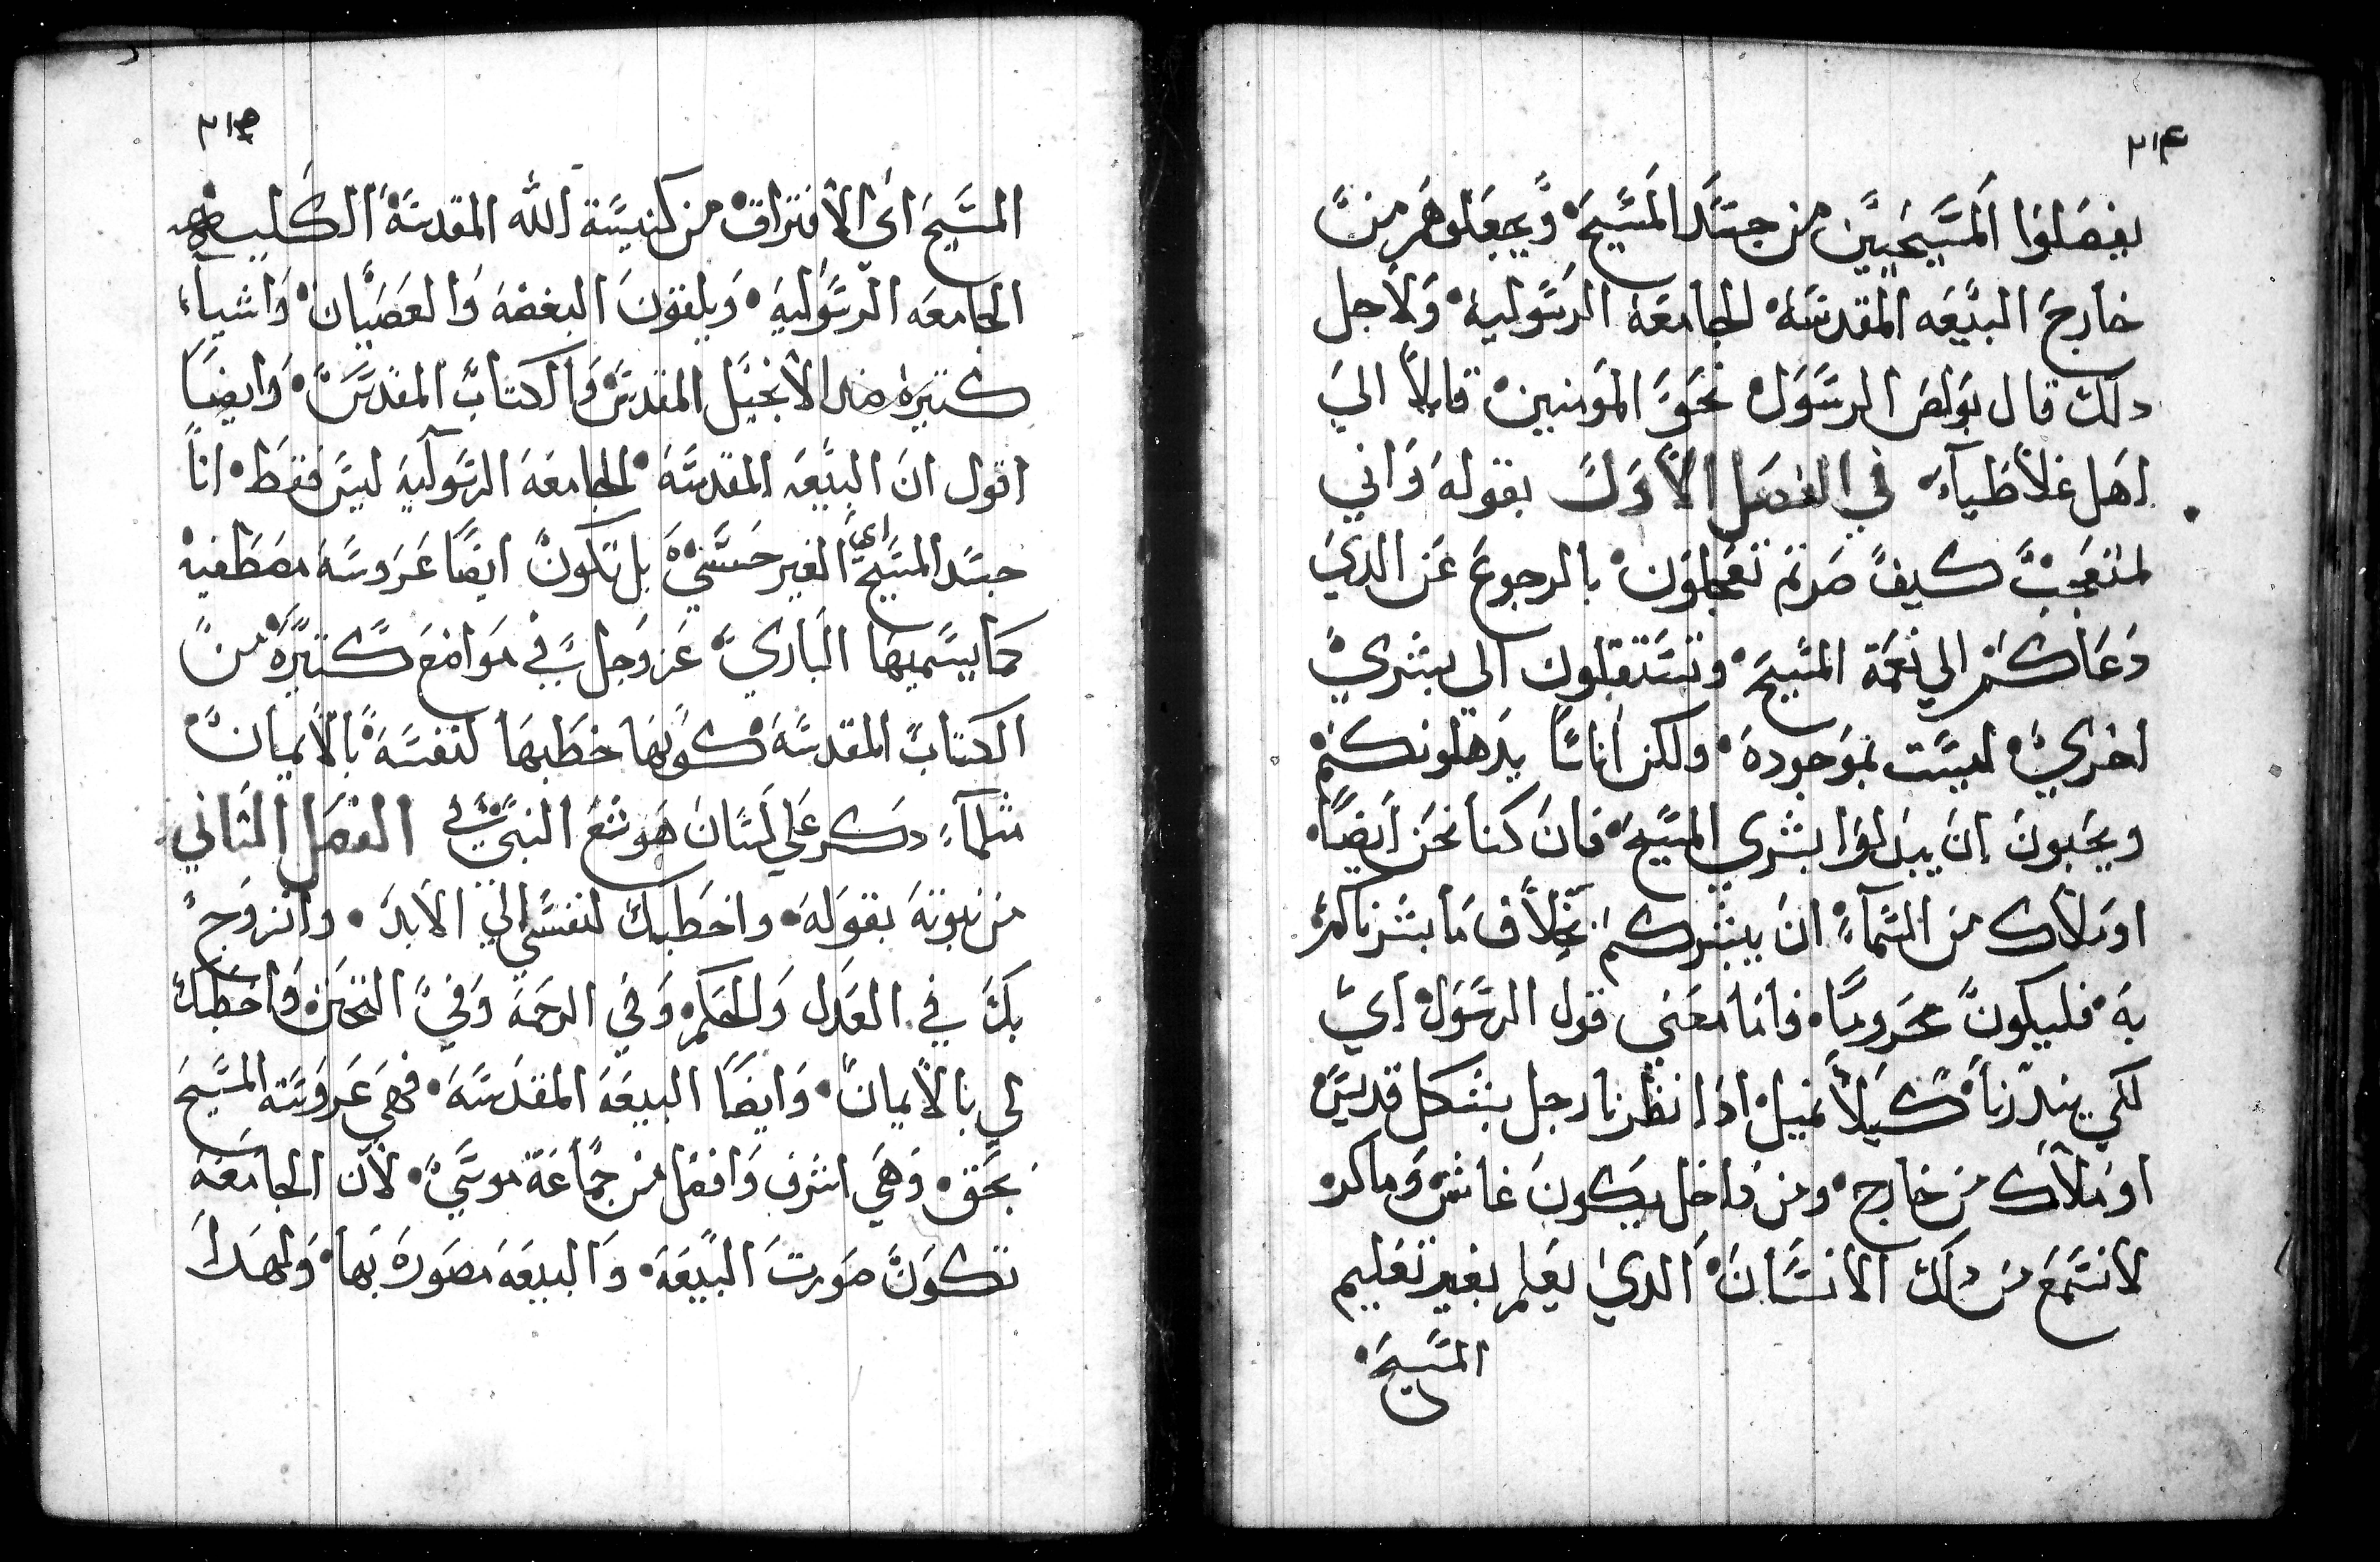 ٢١٤
يفصلوا المسيحيين من جسد المسيح ويجعلوهم من
خارج البيعه المقدسه الجامعه الرسوليه ولاجل
دلك قال بولص الرسول نحو المومنين قايلاً الي
اهل غلاطيآء في الفصل الاول بقوله واني
لمتعجب كيف صرتم تعجلون بالرجوع عن الدي
دعاكم الي نعمة المسيح وتستقبلون الي بشري
اخري ليست بموجوده ولكن اناسًا يدهلونكم
ويحبون ان يبدلوا بشري المسيح فان كنا نحن ايضًا
او ملاك من السمآء ان يبشركم بخلاف ما بشرناكم
به فليكون محرومًا واما معني قول الرسول اي
لكي يندرنا كيلا نميل ادا نظرنا رجل بشكل قديس
او ملاك من خارج ومن داخل يكون غاش وماكر
لا نسمع من داك الانسان الدي يعلم بغير تعليم
المسيح
٢١٥
المسيح اي الافتراق من كنيسة الله المقدسة الكليه
الجامعه الرسوليه ويلفقون البغضه والعصيان واشيآء
كتيره ضد الانجيل المقدس والكتاب المقدس وايضًا
اقول ان البيعه المقدسه الجامعه الرسوليه ليس فقط انا
جسد المسيح اي الغير حسي بل تكون ايضًا عروسه مصطفيه
كما يسميها الباري عز وجل في مواضع كتيره من
الكتاب المقدسه كونها خطبها لنفسه بالايمان
متلمآء دكر علي لسان هوشع النبي في الفصل التاني
من نبوته بقوله واخطبك لنفسي الي الابد واتزوج
بك في العدل والحكم وفي الرحمه وفي التحنن واخطبك
لي بالايمان وايضًا البيعه المقدسه فهي عروسة المسيح
بحق وهي اشرف وافضل من جماعة موسي لان الجامعه
تكون صورت البيعه والبيعه مصوره بها ولهدا